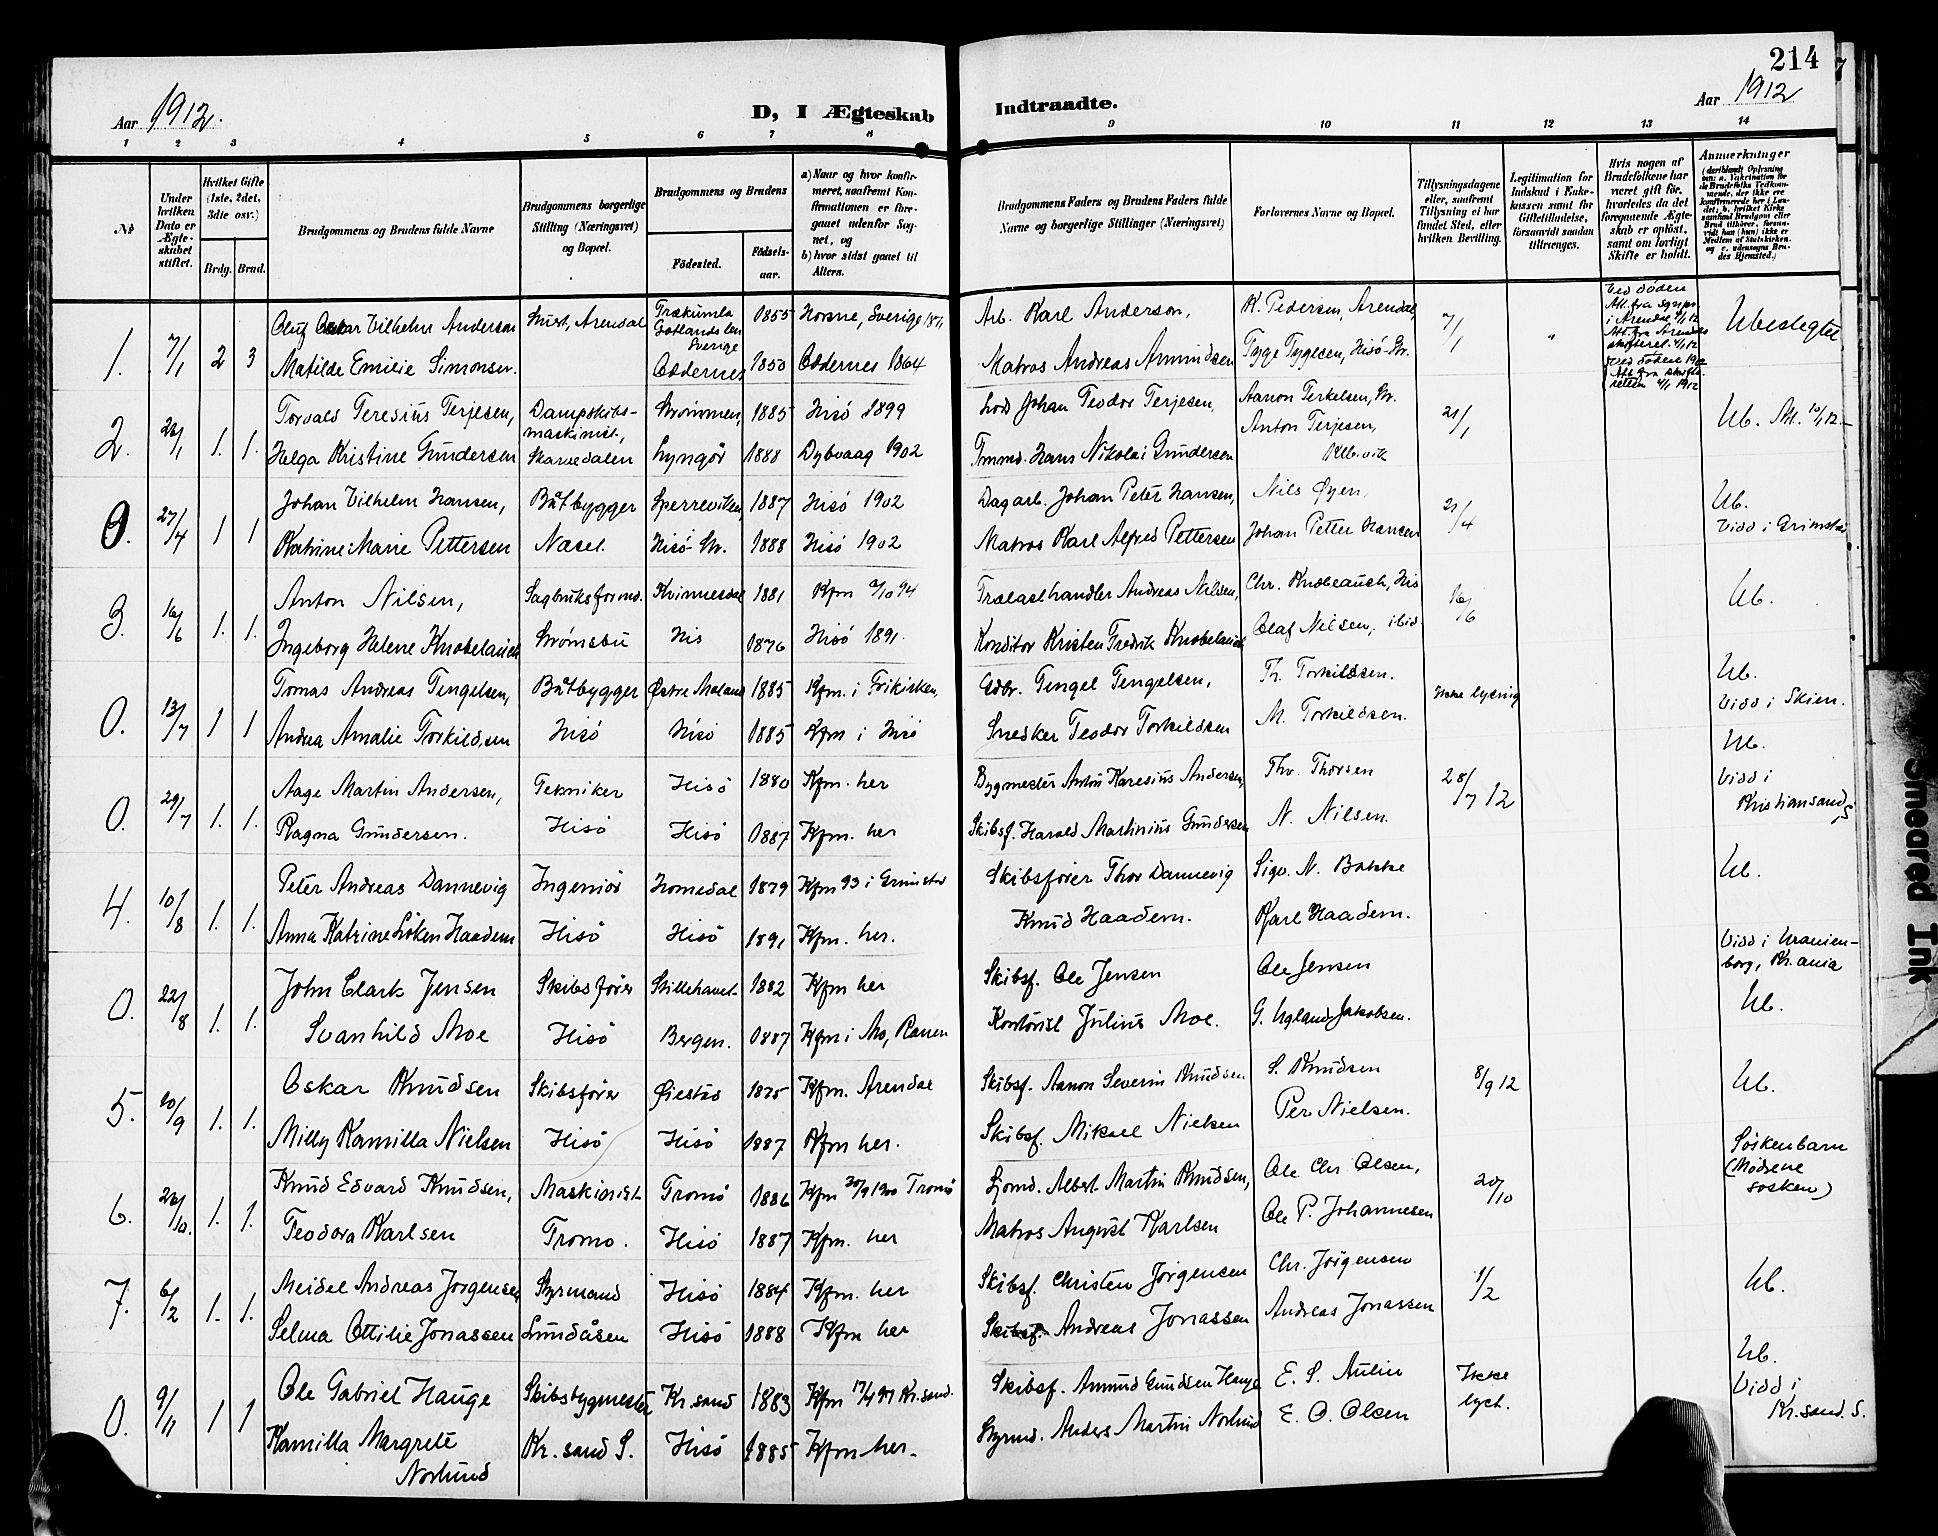 214
Aar 1912.
D, I Ægteskab Indtraadte.
Aar 1912
1 2 3 4 5 6 7 8 9 10 11 12 13 14
No
Under hvilken Dato er Ægteskabet stiftet.
Hvilket Gifte (1ste, 2det, 3die osv.)
Brdg. Brud.
Brudgommens og Brudens fulde Navne
Brudgommens borgerlige Stilling (Næringsvei) og Bopæl.
Brudgommens og Brudens
Födested.
Födselsaar.
a) Naar og hvor konfirmeret, saafremt Konfirmationen er foregaaet udenfor Sognet, og
b) hvor sidst gaaet til Alters.
Brudgommens Faders og Brudens Faders fulde Navne og borgerlige Stillinger (Næringsvei)
Forlovernes Navne og Bopæl.
Tillysningsdagene eller, saafremt Tillysning ei har fundet Sted, efter hvilken Bevilling.
Legitimation for Indskud i Enkekassen samt for Giftetilladelse, forsaavidt saadan tiltrænges.
Hvis nogen af Brudefolkene har været gift för, hvorledes da det foregaaende Ægteskab er oplöst, samt om lovligt Skifte er holdt.
Anmerkninger
1. 7/1 2 3 Oluf Oskar Vilhelm Anderson Murt, Arendal Trækumla Gotlands len Sverige 1855 Norsne, Sverige 1871 Arb. Karl Anderson, K. Pedersen, Arendal, 7/1 " Ved døden Ubeslegtet
Matilde Emilie Simonsen. Oddernes 1850 Oddernes 1864 Matros Andreas Amundsen Tygge Tygesen, Hisö Str.
2. 28/1 1. 1. Torvald Teresius Terjesen, Dampskibsmaskinist, Strømmen, 1885 Hisö 1899 Lods Johan Teodor Terjesen, Aanon Terkelsen, Str. 21/1 Ub. Att. 10/1 12.
Helga Kristine Gundersen Skarsedalen Lyngör 1888 Dybvaag 1902 Tmmd. Hans Nikolai Gundersen Anton Terjesen, Kolbvik
0. 27/4 1 1 Johan Vilhelm Hansen, Båtbygger Sperreviken, 1887 Hisö 1902 Dagarb. Johan Peter Hansen, Nils Øyen, 21/4 Ub.
Katrine Marie Pettersen Næsel. Hisö Str. 1888 Hisö 1902 Matros Karl Alfred Pettersen Johan Petter Hansen Vidd i Grimstad
3. 16/6 1. 1. Anton Nilsen, Sagbruksformd. Kvinnesdal 1881 Kfm 2/10 94 Trælasthandler Andreas Nilsen, Chr. Knobelauch, His 16/6 Ub.
Ingeborg Helene Knobelauch Strømsbu His 1876 Hisö 1891. Konditor Kristen Fredrik Knobelauch Olaf Nilsen, ibid.
0. 13/7 1 1 Tomas Andreas Tengelsen, Båtbygger Østre Moland 1885 Kfm. i Frikirken, Gdbr. Tengel Tengelsen, Th. Torkildsen. Ikke lysning Ub.
Andrea Amalie Torkildsen Hisö Hisö 1885 Kfm i Hisö Snedker Teodor Torkildsen M. Torkildsen. Vidd i Skien.
0. 29/7 1. 1. Aage Martin Andersen, Tekniker Hisö 1880 Kfm. her Bygmester Anton Karesius Andersen, Thv. Thorsen 28/7 12 Ub.
Ragna Gundersen. Hisö Hisö 1887 Kfm. her Skibsf. Harald Martinius Gundersen N. Nilsen. Vidd i Kristiansand S
4. 10/8 1. 1. Peter Andreas Dannevig Ingeniör Homedal 1879 Kfm 93 i Grimstad Skibsförer Thor Dannevig Sigv. N. Bakke Ub.
Anna Katrine Löken Haadem Hisö Hisö 1891 Kfm. her. Knud Haadem. Karl Haadem.
0. 22/8 1. 1. John Clark Jensen Skibsförer Stillehavet 1882 Kfm her Skibsf. Ole Jensen Ole Jensen Vidd i Uranienborg, Kr.ania
Svanhild Moe Hisö Bergen. 1887 Kfm i Mo, Ranen Kontorist Julius Moe. G. Ugland Jakobsen. Ub.
5. 10/9 1. 1. Oskar Knudsen Skibsförer Øiestad 1875 Kfm. Arendal Skibsf. Aanon Severin Knudsen S. Knudsen 8/9 12 Ub.
Milly Kamilla Nielsen Hisö Hisö 1887 Kfm her. Skibsf. Mikael Nielsen Per Nielsen.
6. 26/10. 1. 1. Knud Edvard Knudsen, Maskinist Tromö 1886 Kfm 30/9 1900 Tromö Sjömd. Albert Martin Knudsen, Ole Chr Olsen, 20/10 Søskenbarn (Mødrene søsken)
Teodora Karlsen Tromo. Hisö 1887 Kfm. her Matros August Karlsen Ole P. Johannesen
7. 6/2 1. 1. Meidel Andreas Jörgensen Styrmand Hisö 1884 Kfm. her Skibsf. Christen Jörgensen Chr. Jörgensen 1/2 Ub.
Selma Ottilie Jonassen Lundåsen Hisö 1888 Kfm her Skibsf. Andreas Jonassen Andreas Jonassen
0. 9/11 1 1 Ole Gabriel Hauge Skibsbygmester Kr.sand 1883 Kfm 17/4 97 Kr.sand. Skibsf. Amund Gundsen Hauge E. S. Aulin Ikke lyst. Ub.
Kamilla Margrete Norlund Kr.sand S. Hisö 1885 Kfm her. Styrmd. Anders Martin Norlund E. O. Olsen Vidd i Kr.sand. S.
Smeared Ink